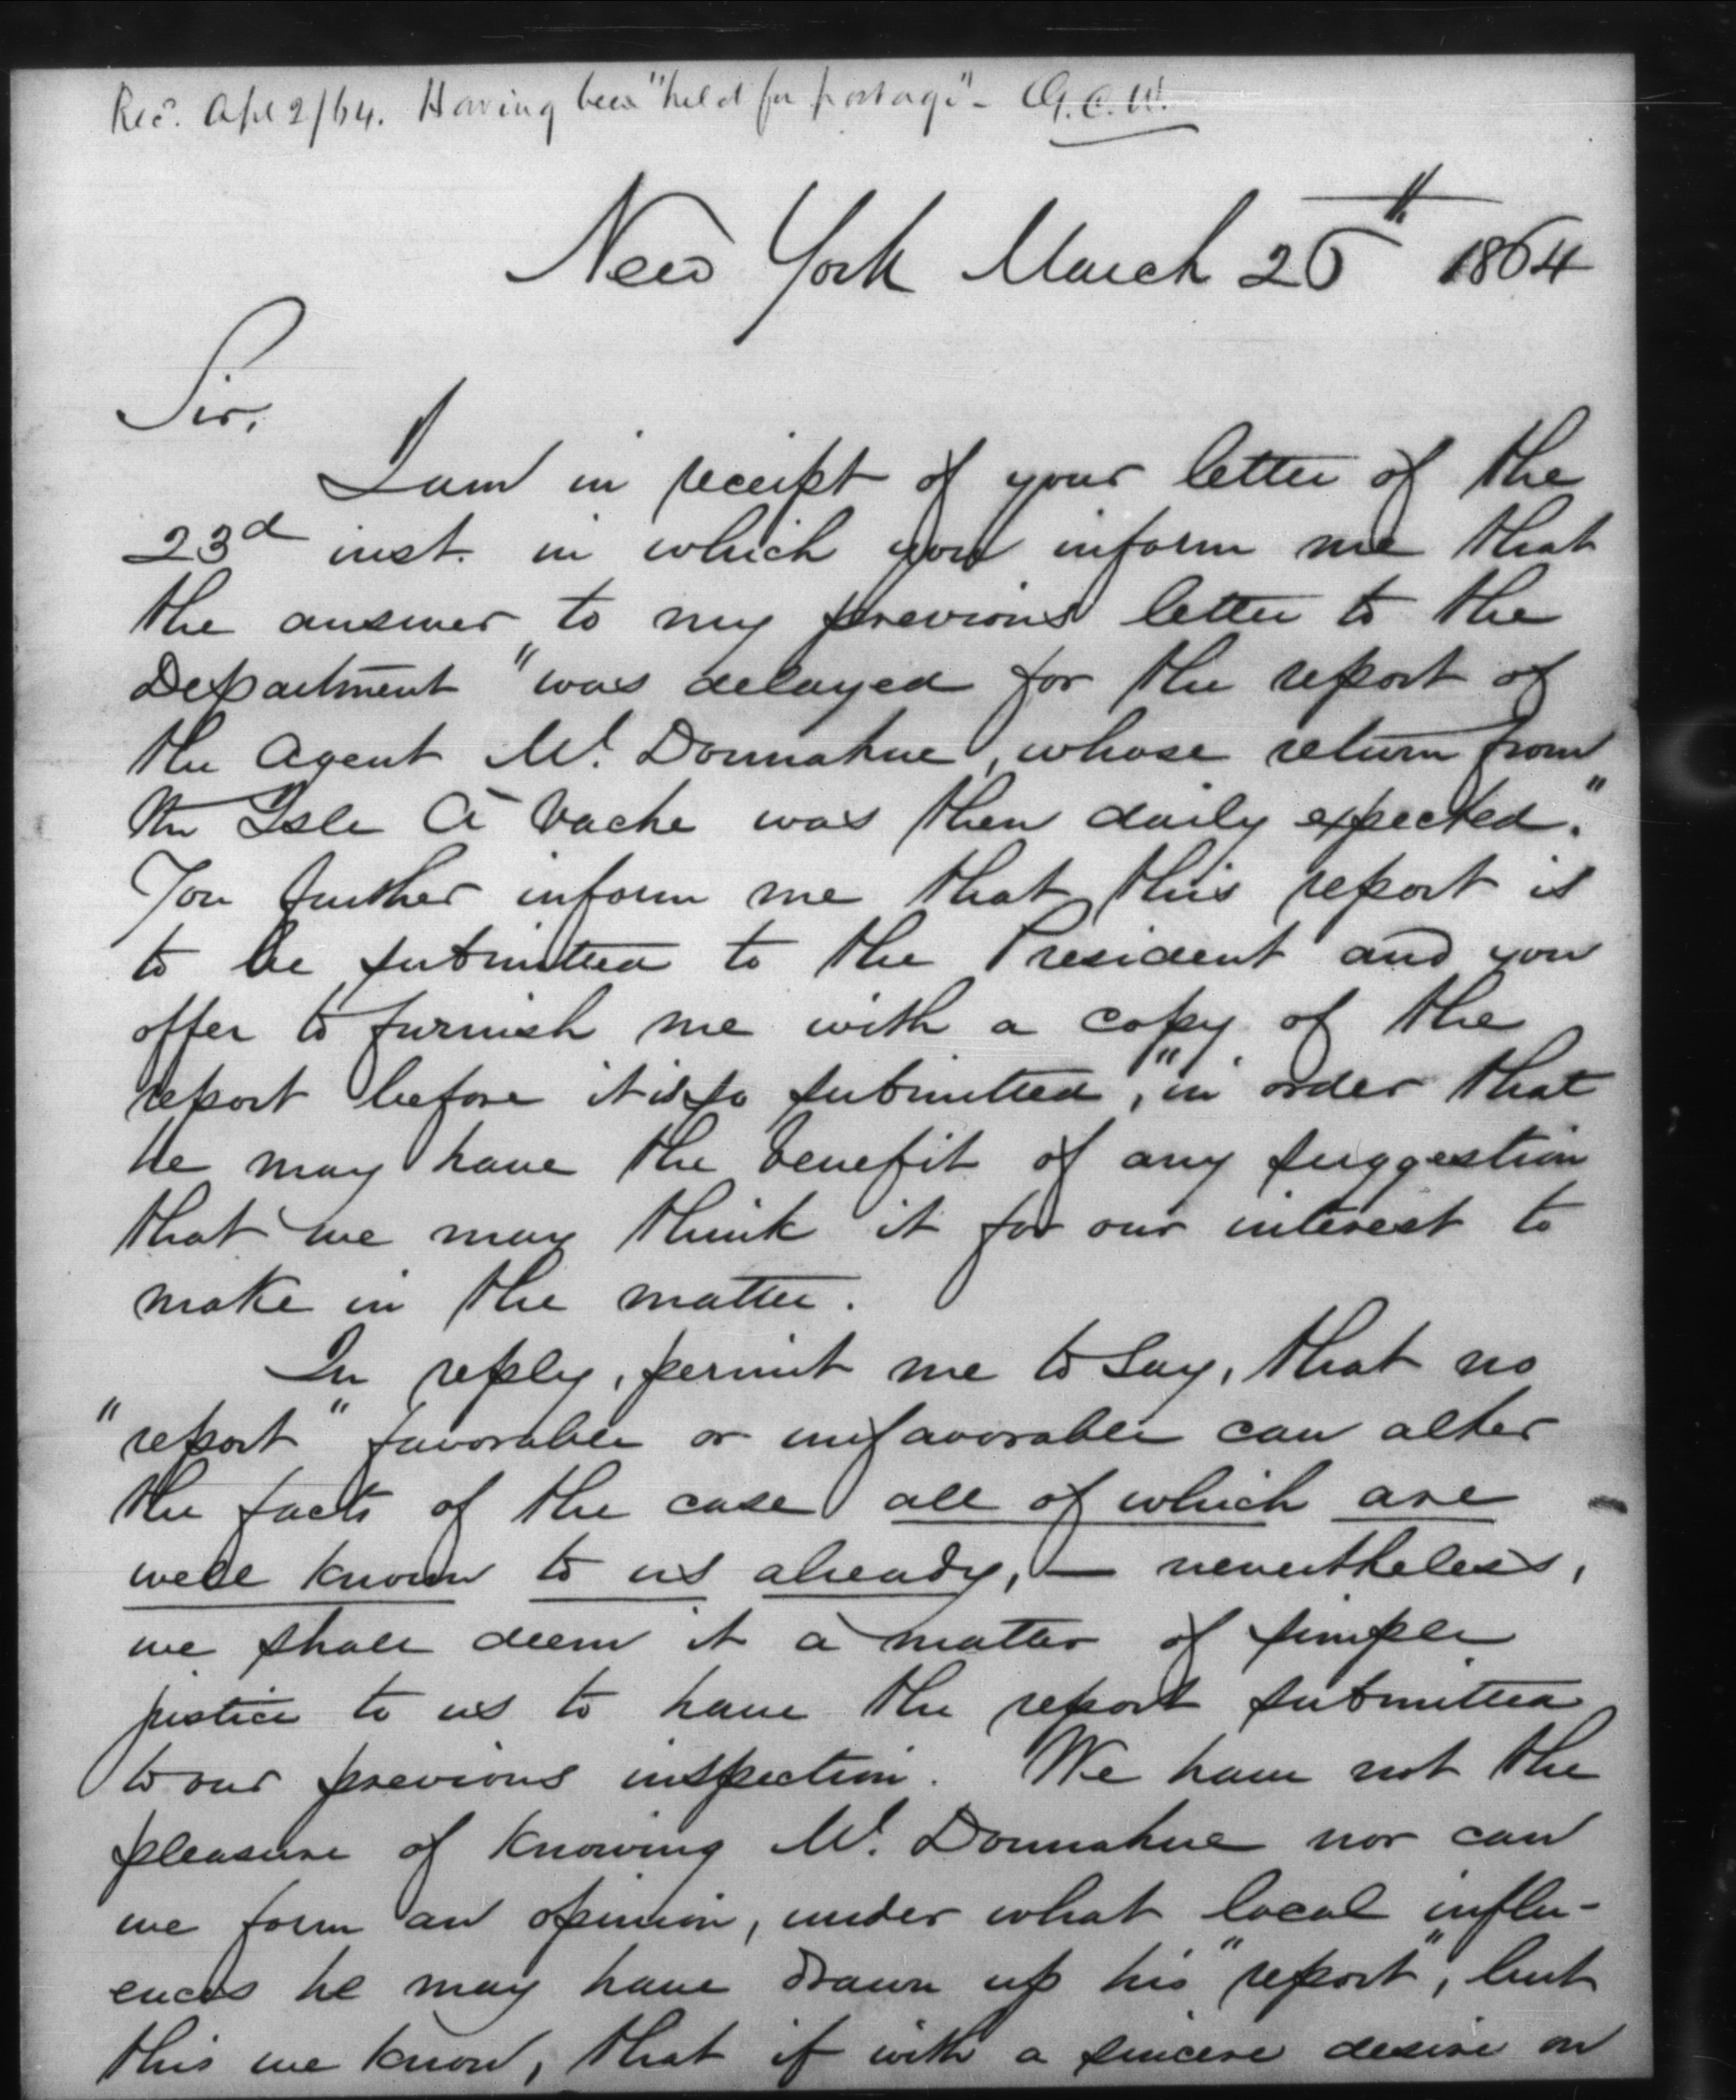 Rec'd. Apl 2/64. Having been "held for postage" - G.C.W.
New York March 25th 1864
Sir,
I am in receipt of your letter of the
23d inst. in which you inform me that
the answer to my previous letter to the
Department "was delayed for the report of
the Agent Mr. Donnahue, whose return from
the Isle A Vache was then daily expected."
You further inform me that this report is
to be submitted to the President and you
offer to furnish me with a copy of the
report before it is so submitted, "in order that
he may have the benefit of any suggestion
that we may think it for our interest to
make in the matter.
In reply, permit me to say, that no
"report" favorable or unfavorable can alter
the facts of the case all of which are
well known to us already, — nevertheless,
we shall deem it a matter of simple
justice to us to have the report submitted
to our previous inspection. We have not the
pleasure of knowing Mr. Donnahue nor can
we form an opinion, under what local influ-
ences he may have drawn up his "report", but
this we know, that if with a sincere desire on